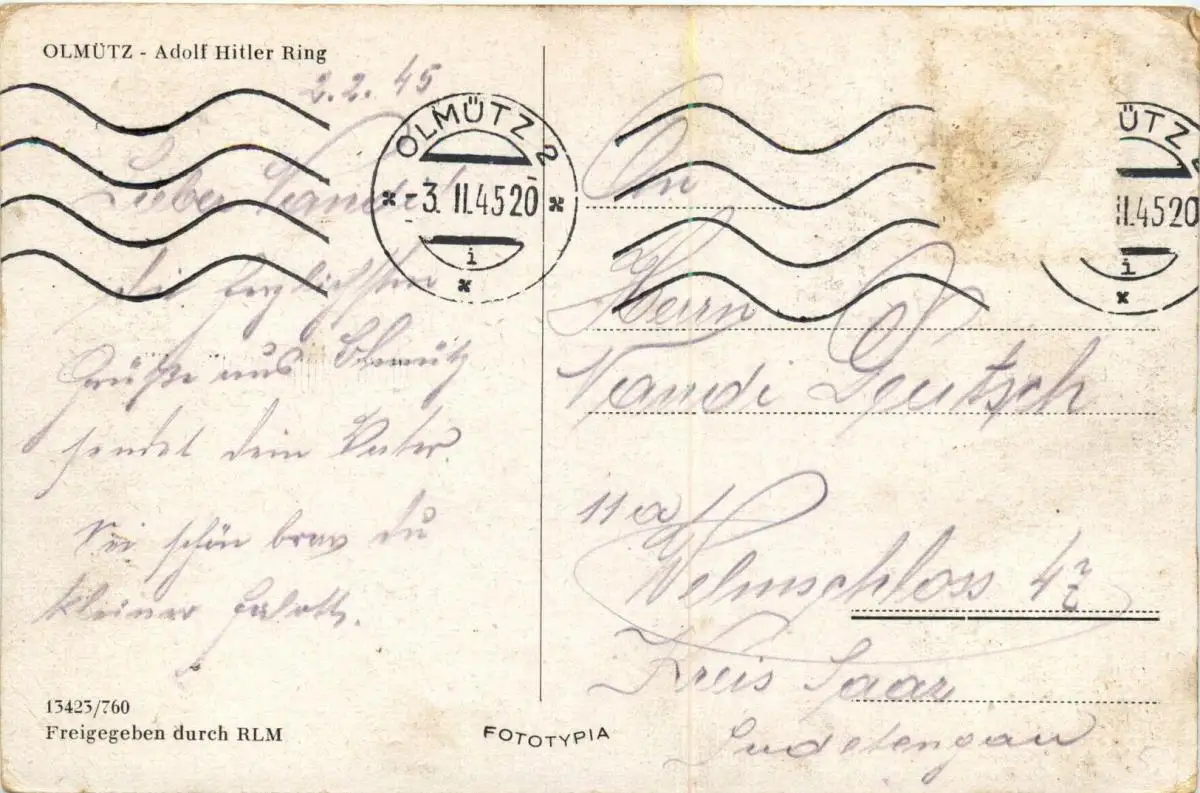 OLMÜTZ - Adolf Hitler Ring
2.2.45
Lieber Nandi!
die herzlichsten
Grüße aus Olmütz
sendet dein Vater.
Sei schön brav du
kleiner
13423/760
Freigegeben durch RLM
FOTOTYPIA
OLMÜTZ 2
-3. II. 45 20
i
ÜTZ
II. 45 20
i
An
Herrn
Nandi Deutsch
11a
Welmschloss 42
Kreis Saaz
Sudetengau